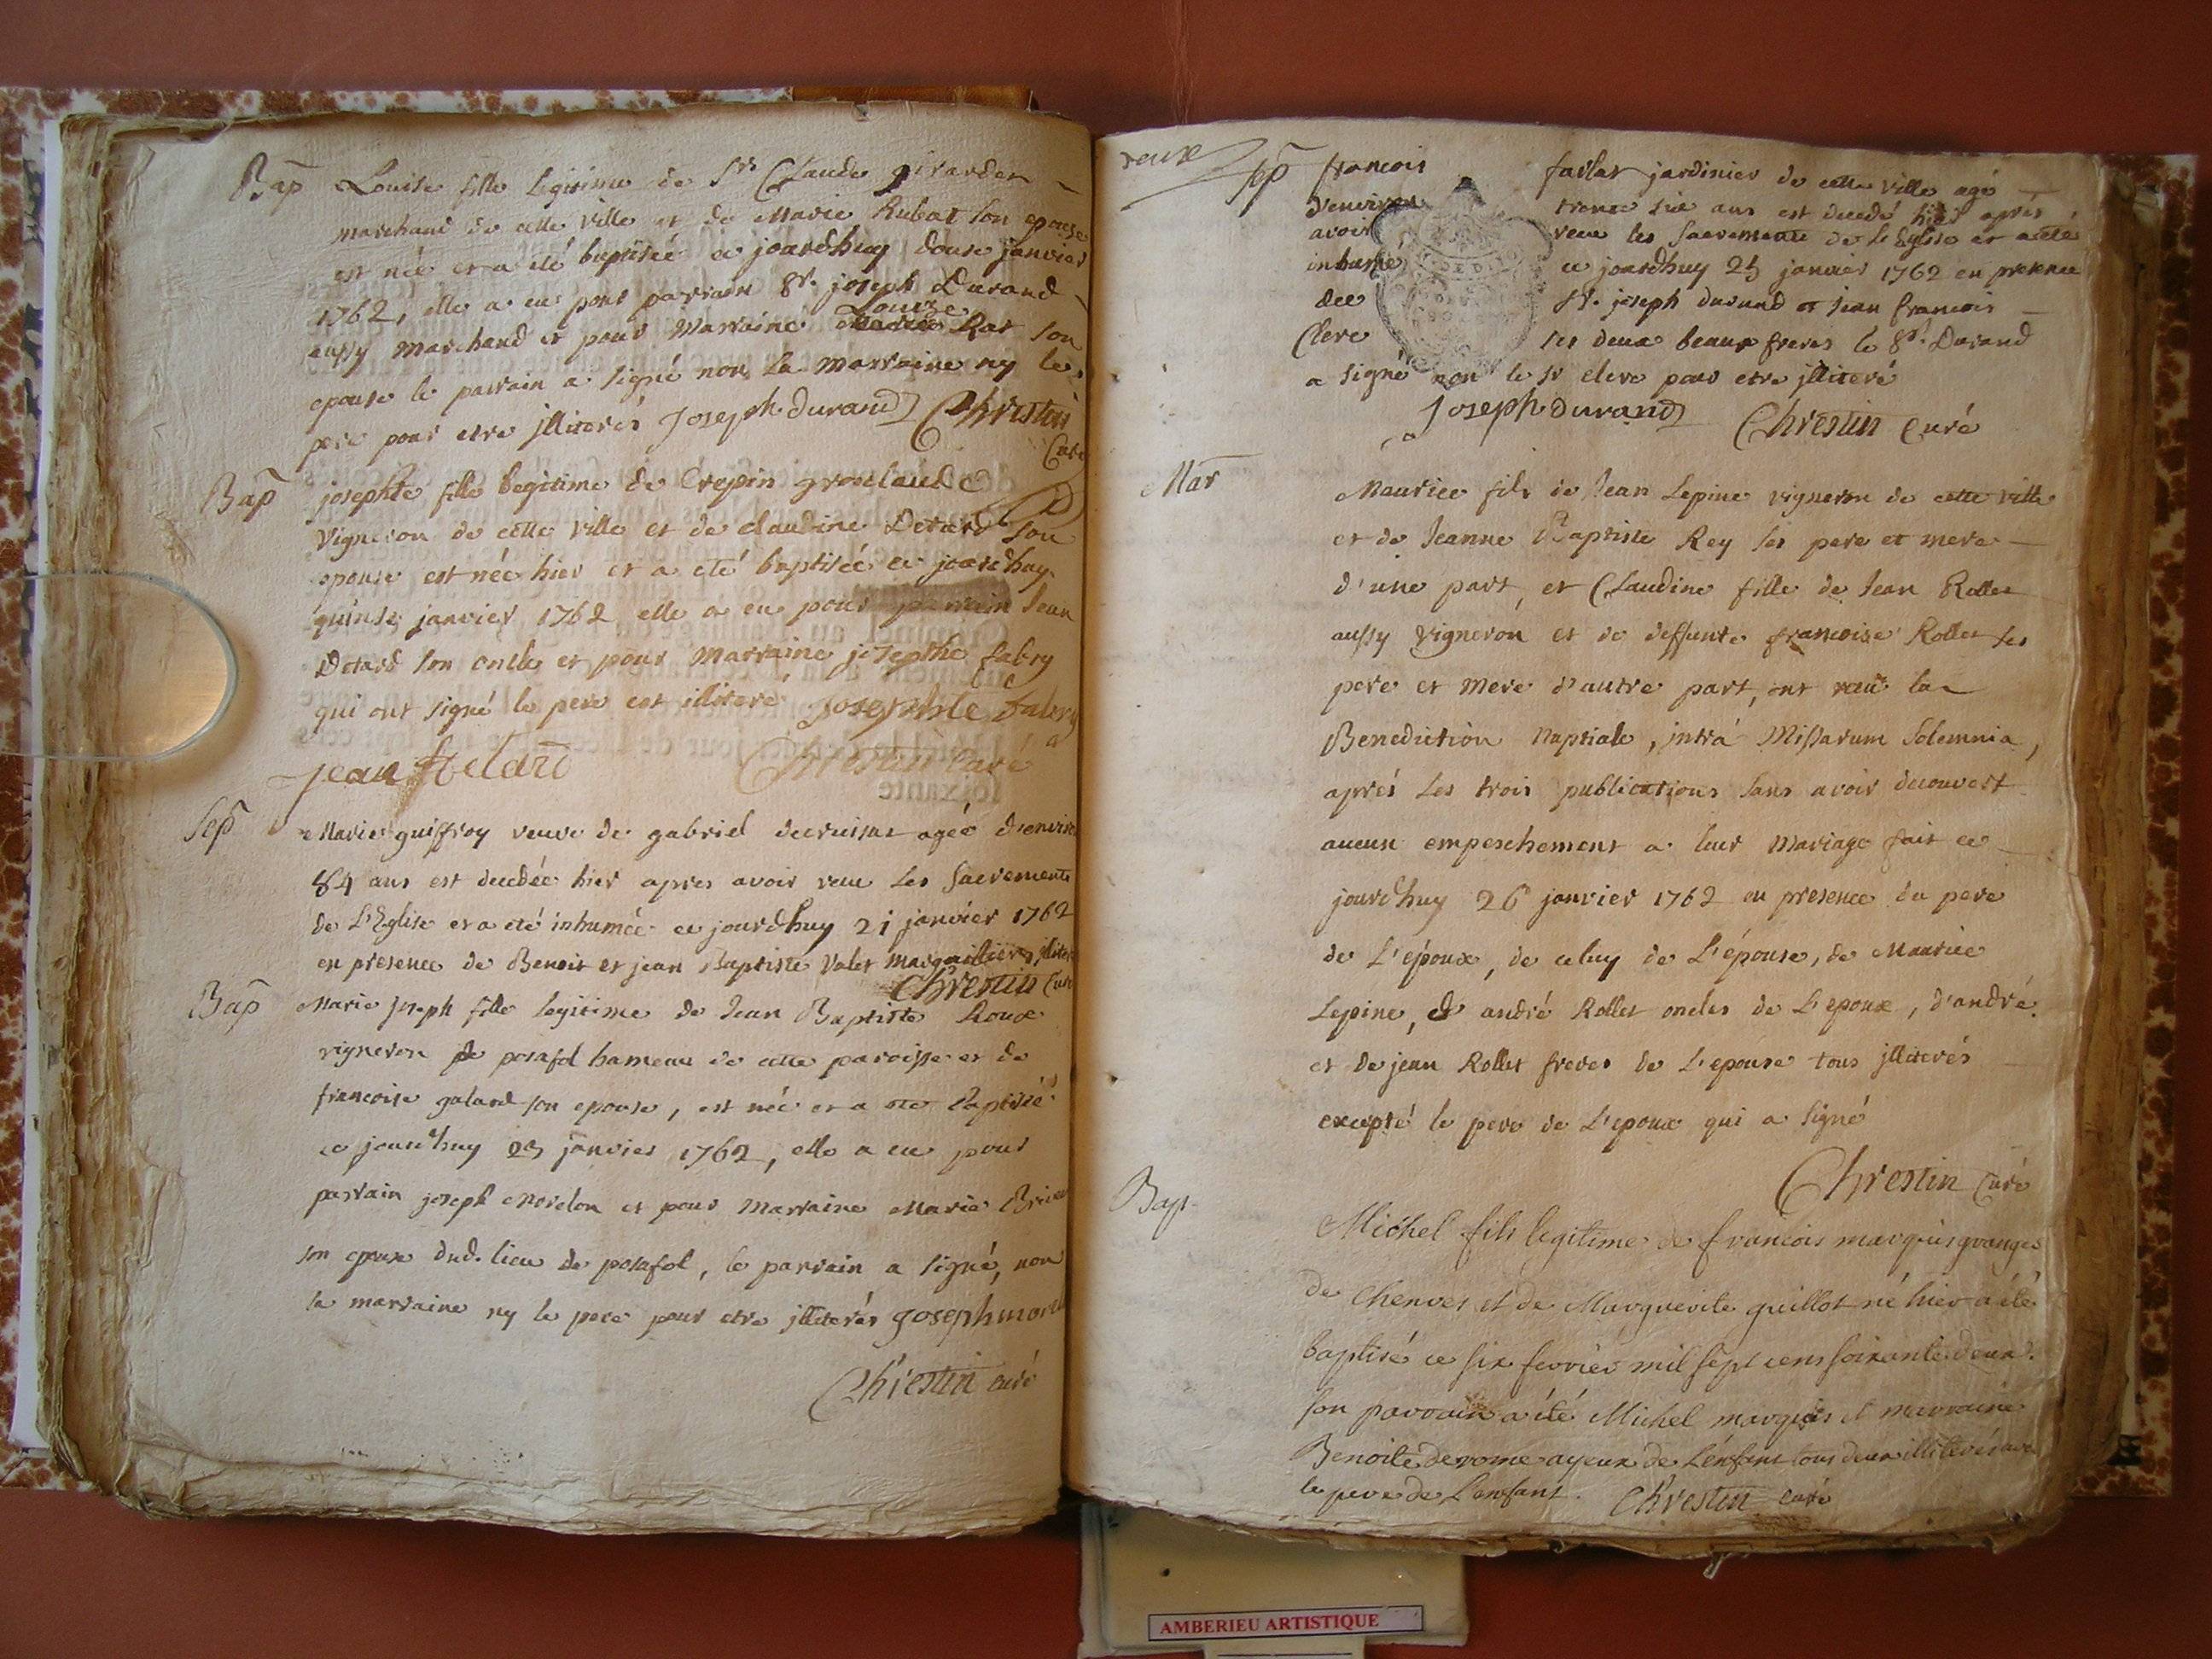 Bap Louise fille legitime de Sr Claude girarder
marchand de cette ville et de Marie Rubat son epouse
est née et a été baptisée ce jourdhuy douse janvier
1762, elle a eu pour parrain Sr. joseph Durand
Louize
aussy marchand et pour Marraine Rat son
epouse le parrain a signé non la marraine ny le
pere pour etre jlliterés Joseph durand Chrestin
Curé
Bap josephte fille legitime de Crepin groslaude
vigneron de cette ville et de claudine Detard son
epouse est née hier et a eté baptisée ce jourdhuy
quinse janvier 1762 elle a eu pour parrain Jean
Detard son oncle et pour Marraine josepthe fabry
qui ont signé le pere est illiteré josephte fabry
jean detard Chrestin Curé
Sep Marie guiffroy veuve de gabriel decruisat agée denviron
84 ans est decedée hier apres avoir receu les Sacrements
de L'Eglise et a eté inhumée ce jourdhuy 21 janvier 1762
en presence de Benoit et jean Baptiste Valet marguilliers jlliterés
Chrestin Curé
Bap Marie joseph fille legitime de Jean Baptiste Roux
vigneron de posafol hameau de cette paroisse et de
francoise galand son epouse, est née et a eté baptisée
ce jourdhuy 23 janvier 1762, elle a eu pour
parrain joseph morelon et pour marraine Marie
son epouse dud. lieu de posafol, le parrain a signé, non
la marraine ny le pere pour etre jlliterés joseph
Chrestin curé
deux
Sep francois farlat jardinier de cette ville agé
d'environ trente six ans est decedé hier aprés
avoir receu les Sacrements de L'Eglise et a eté
inhumé ce jourdhuy 25 janvier 1762 en presence
des Sr. joseph durand et jean francois
Clerc ses deux beaux freres le Sr. Durand
a signé non le sr clerc pour etre jlliteré
Joseph durand Chrestin Curé
Mar Maurice fils de Jean Lepine vigneron de cette ville
et de Jeanne Baptiste Rey ses pere et mere
d'une part, et Claudine fille de Jean Rollet
aussy vigneron et de deffunte francoise Rollet ses
pere et mere d'autre part, ont receu la
Benediction Nuptiale, jntrá Missarum Solemnia,
aprés les trois publications sans avoir decouvert
aucun empeschement a leur Mariage fait ce
jourdhuy 26 janvier 1762 en presence du pere
de L'époux, de celuy de L'épouse, de Maurice
Lepine, d andré Rollet oncles de L'epoux, d'andré
et de jean Rollet freres de L'epouse tous jlliterés
excepté le pere de L'epoux qui a signé
Chrestin Curé
Bap- Michel fils legitime de francois marquis granger
de Chenves et de Marguerite guillot né hier a été
baptisé ce six fevrier mil sept cens soixante deux.
son parrain a été Michel marquis et marraine
Benoite derome ayeux de L'enfant tous deux illiterés avec
le pere de L'enfant. Chrestin curé
AMBERIEU ARTISTIQUE